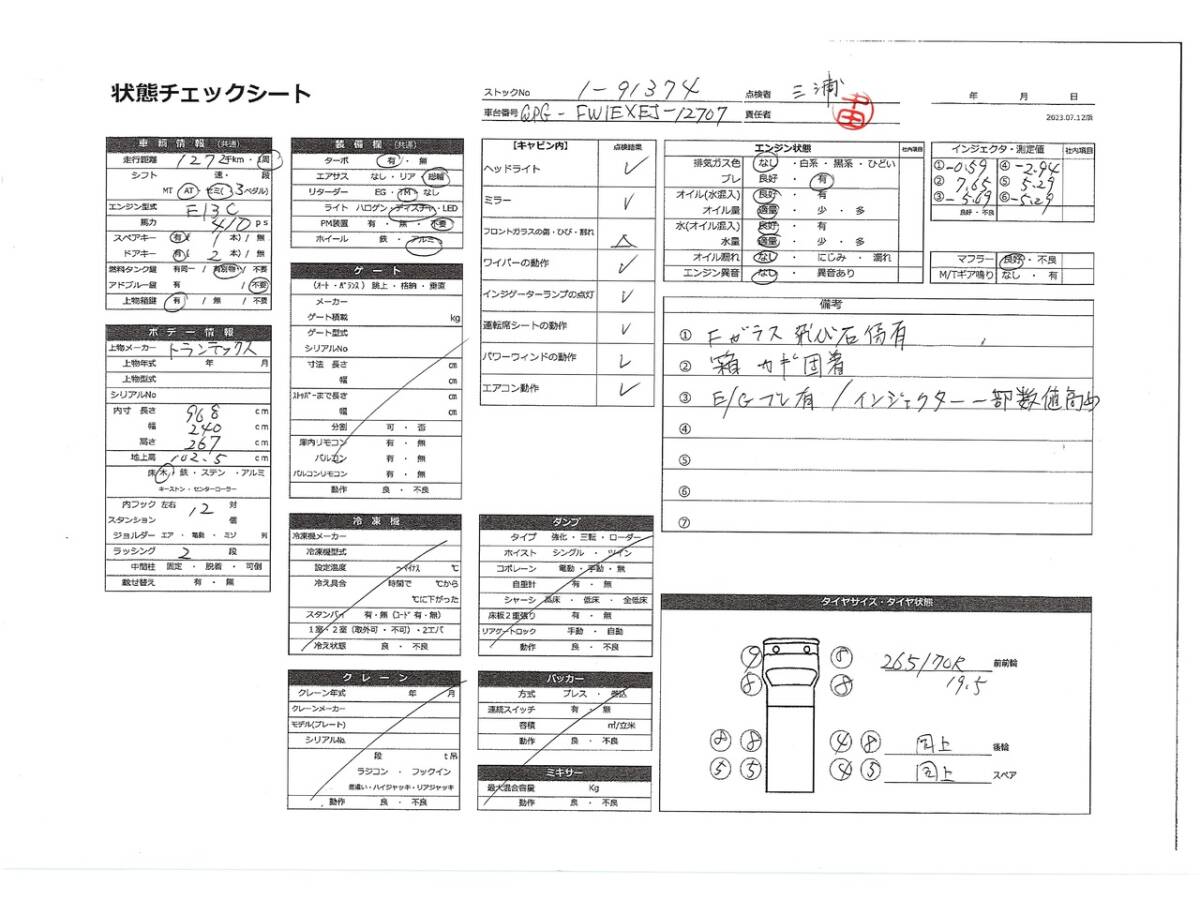 状態チェックシート
ストックNo 1-91374
点検者 三浦
年 月 日
車台番号 QPG-FW1EXEJ-12707
責任者
2023.07.12版
車輌情報 (共通)
走行距離 1272 千km・1周
シフト 速・ 段
MT AT セミ( 3ペダル)
エンジン型式 E13C
馬力 410 ps
スペアキー 有( 1 本) / 無
ドアキー 有( 2 本) / 無
燃料タンク鍵 有同一 / 有別物 / 不要
アドブルー鍵 有 / 不要
上物箱鍵 有 / 無 / 不要
ボデー情報
上物メーカー トランテックス
上物年式 年 月
上物型式
シリアルNo
内寸 長さ 968 cm
幅 240 cm
高さ 267 cm
地上高 102.5 cm
床 木・鉄・ステン・アルミ
キーストン・センターコーラー
内フック 左右 12 対
スタンション 個
ジョルダー エア・電動・ミゾ 列
ラッシング 2 段
中間柱 固定・脱着・可倒
載せ替え 有・無
装備欄 (共通)
ターボ 有・無
エアサス なし・リア・総輪
リターダー EG・TM・なし
ライト ハロゲン・ディスチャ・LED
PM装置 有・無・不要
ホイール 鉄・アルミ
ゲート
(オート・バランス) 跳上・格納・垂直
メーカー
ゲート積載 kg
ゲート型式
シリアルNo
寸法 長さ cm
幅 cm
ストッパーまで長さ cm
幅 cm
分割 可・否
庫内リモコン 有・無
バルコン 有・無
バルコンリモコン 有・無
動作 良・不良
冷凍機
冷凍機メーカー
冷凍機型式
設定温度 ～マイナス ℃
冷え具合 時間で ℃から
℃に下がった
スタンバイ 有・無 (コード 有・無)
1室・2室 (取外可・不可)・2エバ
冷え状態 良・不良
クレーン
クレーン年式 年 月
クレーンメーカー
モデル(プレート)
シリアルNo.
段 t吊
ラジコン・フックイン
差違い・ハイジャッキ・リアジャッキ
動作 良・不良
【キャビン内】 点検結果
ヘッドライト ✓
ミラー ✓
フロントガラスの傷・ひび・割れ △
ワイパーの動作 ✓
インジケーターランプの点灯 ✓
運転席シートの動作 ✓
パワーウィンドの動作 ✓
エアコン動作 ✓
ダンプ
タイプ 強化・三転・ローダー
ホイスト シングル・ツイン
コボレーン 電動・手動・無
自重計 有・無
シャーシ 高床・低床・全低床
床板2重張り 有・無
リアゲートロック 手動・自動
動作 良・不良
パッカー
方式 プレス・巻込
連続スイッチ 有・無
容積 ㎥/立米
動作 良・不良
ミキサー
最大混合容量 Kg
動作 良・不良
エンジン状態 社内項目
排気ガス色 なし・白系・黒系・ひどい
ブレ 良好・有
オイル(水混入) 良好・有
オイル量 適量・少・多
水(オイル混入) 良好・有
水量 適量・少・多
オイル漏れ なし・にじみ・漏れ
エンジン異音 なし・異音あり
インジェクタ・測定値 社内項目
①-0.59 ④-2.94
② 7.65 ⑤ 5.29
③-5.69 ⑥-5.29
良好・不良
マフラー 良好・不良
M/Tギア鳴り なし・有
備考
① Fガラス 飛び石傷有
② 箱 カギ固着
③ E/Gブレ有 / インジェクター一部数値高め
④
⑤
⑥
⑦
タイヤサイズ・タイヤ状態
265/70R 前前輪
19.5
同上 後輪
同上 スペア